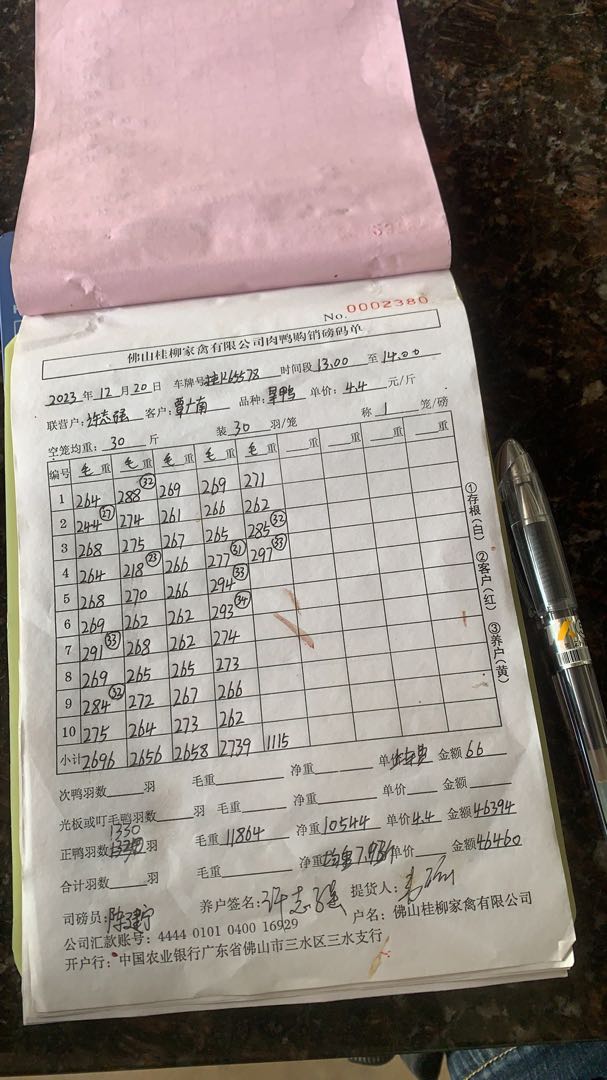 No. 0002380
佛山桂柳家禽有限公司肉鸭购销磅码单
2023 年 12 月 20 日 车牌号 桂K65578 时间段 13.00 至 14.00
联营户: 许志强 客户: 覃广南 品种: 旱鸭 单价: 4.4 元/斤
空笼均重: 30 斤 装 30 羽/笼 称 1 笼/磅
编号 毛重 毛重 毛重 毛重 毛重 重 重 重 重
1 264 288 ㉜ 269 269 271
2 244 ㉗ 274 261 266 262
3 268 275 267 265 285 ㉜
4 264 218 ㉓ 266 277 ㉛ 297 ㉝
5 268 270 266 294 ㉝
6 269 262 262 293 ㉞
7 291 ㉝ 268 262 274
8 269 265 265 273
9 284 ㉜ 272 267 266
10 275 264 273 262
小计 2696 2656 2658 2739 1115
①存根(白) ②客户(红) ③养户(黄)
次鸭羽数 羽 毛重 净重 单价 金额 66
光板或叮毛鸭羽数 羽 毛重 净重 单价 金额
正鸭羽数 1330 羽 毛重 11864 净重 10544 单价 4.4 金额 46394
合计羽数 羽 毛重 净重 均重7.936 单价 金额 46460
司磅员: 养户签名: 许志强 提货人:
公司汇款账号: 4444 0101 0400 16929 户名: 佛山桂柳家禽有限公司
开户行: 中国农业银行广东省佛山市三水区三水支行